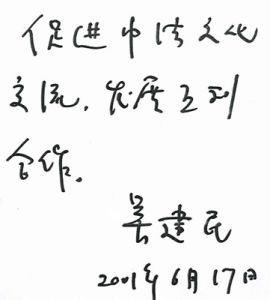 促进中法文化
交流，发展互利
合作。
吴建民
2001年6月17日